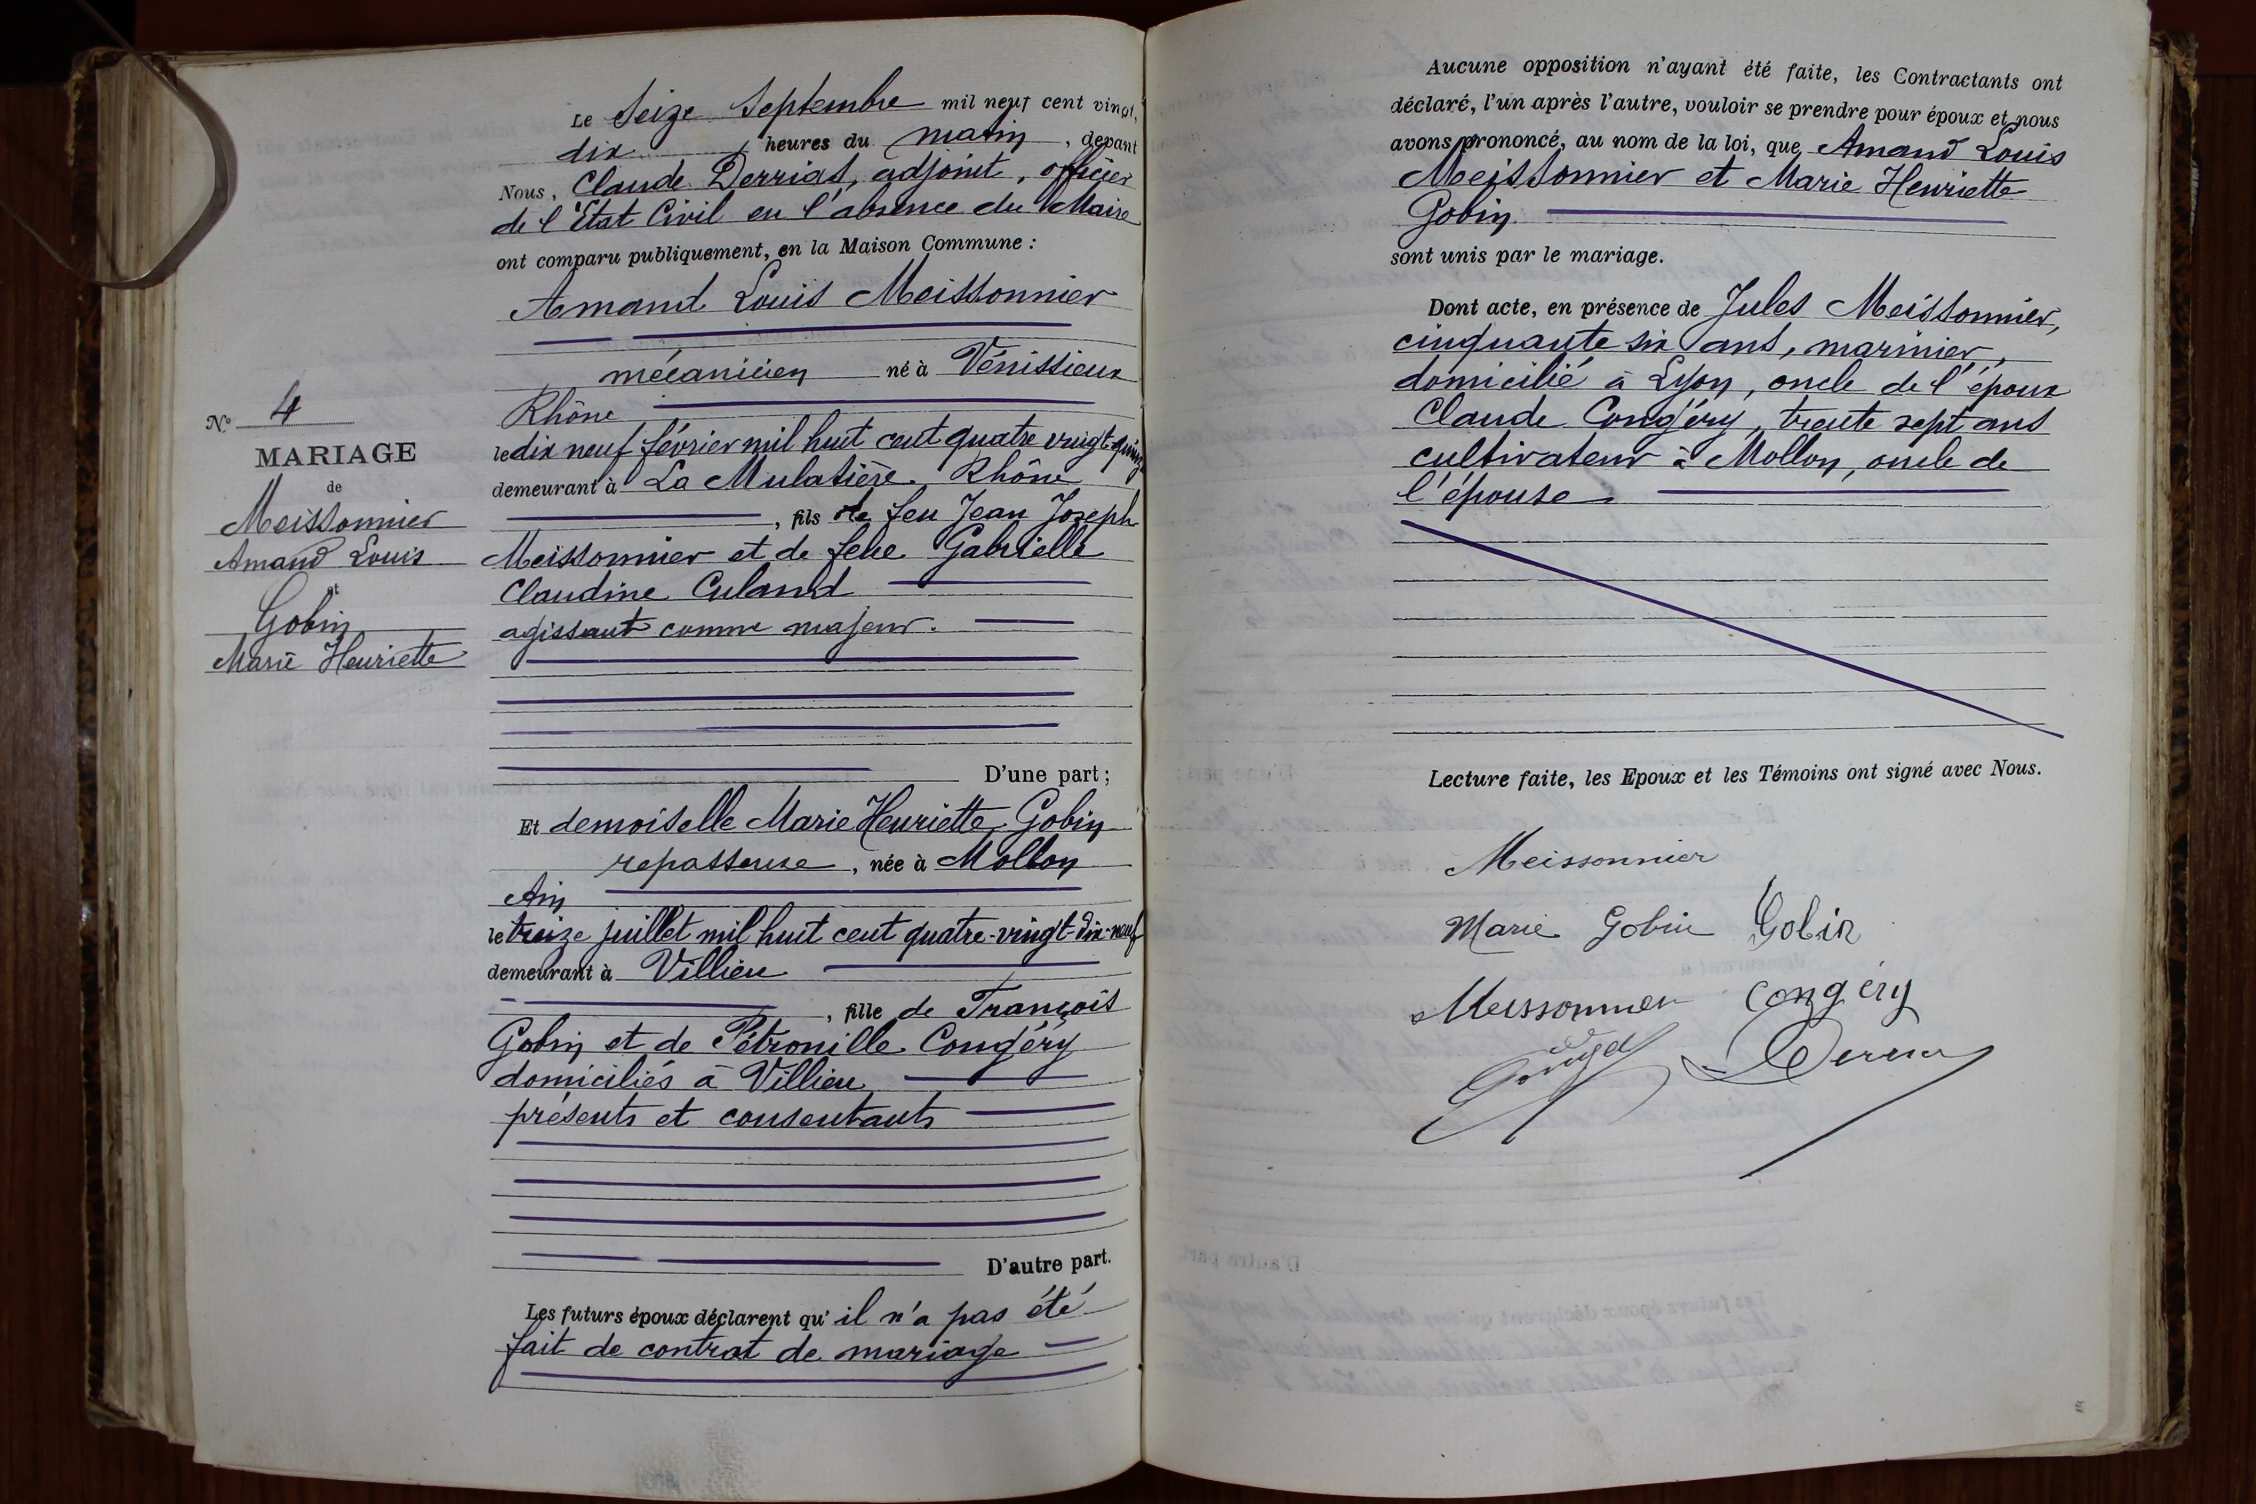 Le Seize Septembre mil neuf cent vingt,
dix heures du matin, devant
Nous, Claude Derrias, adjoint, officier
de l'Etat Civil en l'absence du Maire
ont comparu publiquement, en la Maison Commune :
Amand Louis Meissonnier
mécanicien né à Vénissieux
Rhône
le dix neuf février mil huit cent quatre vingt-quinze
demeurant à La Mulatière, Rhône
, fils de feu Jean Joseph
Meissonnier et de feue Gabrielle
Claudine Culand
agissant comme majeur.
D'une part ;
N° 4
MARIAGE
de
Meissonnier
Amand Louis
et
Gobin
Marie Henriette
Et demoiselle Marie Henriette Gobin
repasseuse, née à Mollon
Ain
le treize juillet mil huit cent quatre-vingt-dix-neuf
demeurant à Villieu
, fille de François
Gobin et de Pétronille Congéry
domiciliés à Villieu
présents et consentants
D'autre part.
Les futurs époux déclarent qu'il n'a pas été
fait de contrat de mariage
Aucune opposition n'ayant été faite, les Contractants ont
déclaré, l'un après l'autre, vouloir se prendre pour époux et nous
avons prononcé, au nom de la loi, que Amand Louis
Meissonnier et Marie Henriette
Gobin
sont unis par le mariage.
Dont acte, en présence de Jules Meissonnier,
cinquante six ans, marinier,
domicilié à Lyon, oncle de l'époux
Claude Congéry, trente sept ans
cultivateur à Mollon, oncle de
l'épouse.
Lecture faite, les Epoux et les Témoins ont signé avec Nous.
Meissonnier
Marie Gobin Gobin
Meissonnier Congéry